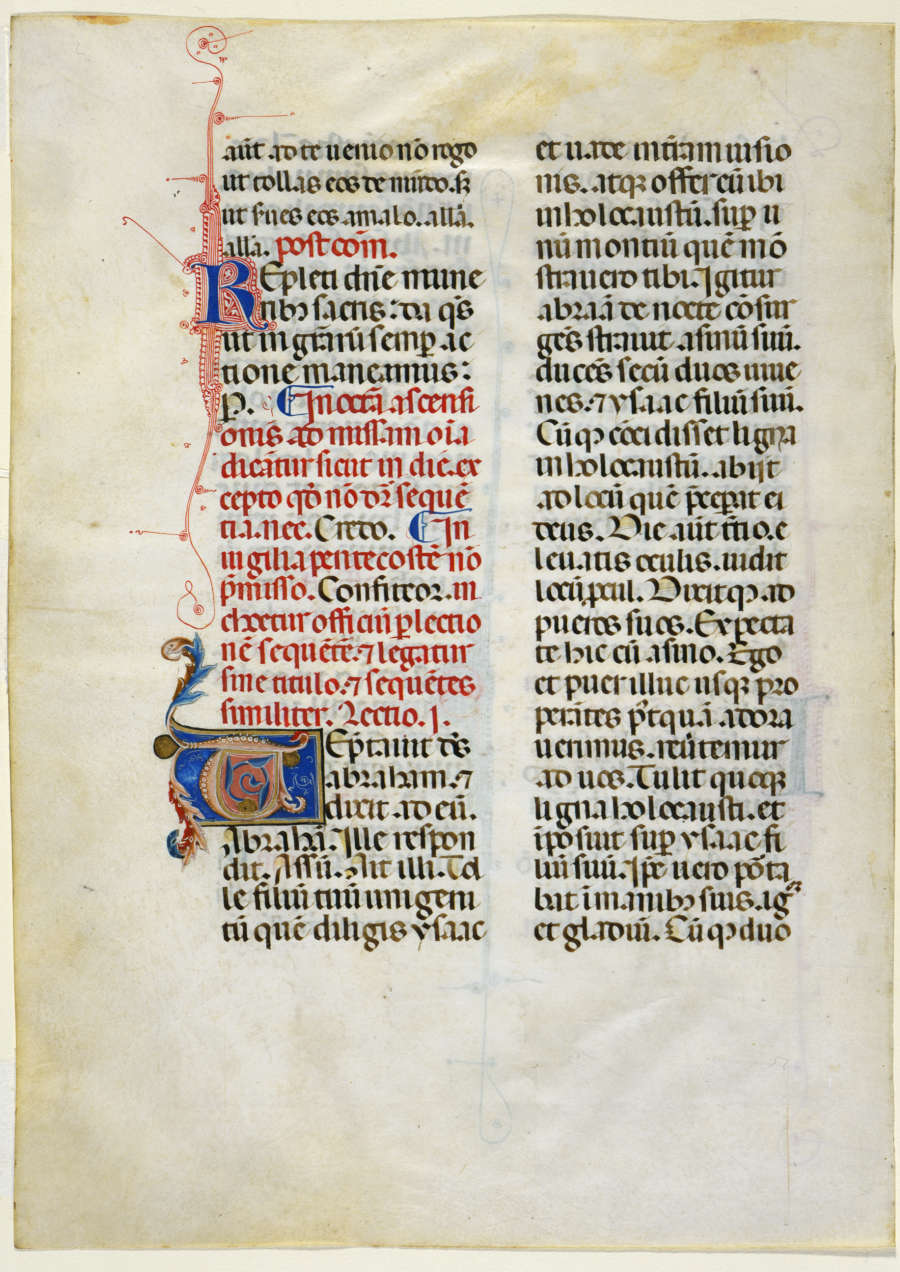 aūt ad te uenio nō rogo
ut tollas eos de mūdo. sꝫ
ut s̄ues eos a malo. all̄a.
all̄a. post com̄.
REpleti dn̄e mune
ribꝫ sacris: da qs̄
ut in gr̄aru̅ semp̱ ac
tione maneamus:
P. In octa ascensi
onis ad missam oīa
dicāt̄ur sicut in die. ex
cepto qd̄ nō dr̄ sequē
tia. nec. Credo. In
uigilia pentecostē nō
p̄misso. Confiteor. in
choetur officiū p̱ lectio
nē sequētē. ⁊ legatur
sine titulo. ⁊ sequētes
similiter. Lectio. j.
TEptauit ds̄
abraham. ⁊
dixit ad eū.
Abrahā. Ille respon
dit. Assū. Ait illi. Tol
le filiū tuū unigeni
tū quē diligis ysaac
et uade in tr̄am uisio
nis. atqꝫ offer eū ibi
in holocaustū. sup̱ u
nū montiū quē mō
strauero tibi. Igitur
abraā de nocte cōsur
gēs strauit asinū suū.
ducēs secū duos iuue
nes. ⁊ ysaac filiū suū.
Cū qꝫ cōcidisset ligna
in holocaustū. abijt
ad locū quē p̄cep̱at ei
deus. Die aūt t̄tio. e
leuatis oculis. uidit
locū ꝓcul. Dixitqꝫ ad
pueros suos. Expecta
te hic cū asino. Ego
et puer illuc usqꝫ pro
perātes p̄tquā adora
uerimus. reūtemur
ad uos. Tulit quoqꝫ
ligna holocausti. et
īposuit sup̱ ysaac fi
liū suū. Ip̄e uero porta
bat ī manibꝫ suis. ignē
et gladiū. Cū qꝫ duo